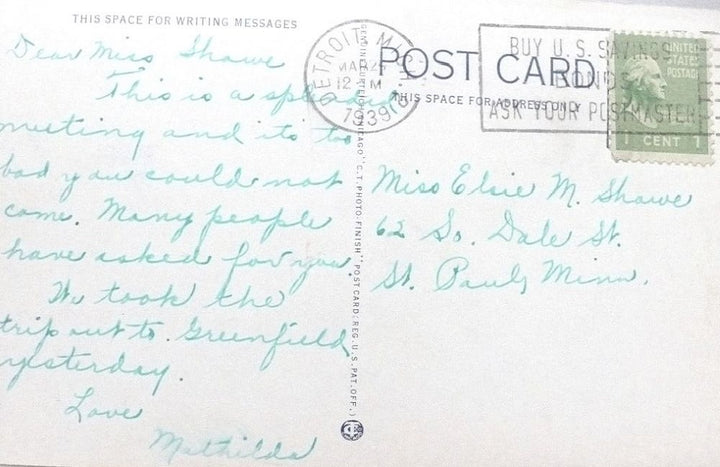 THIS SPACE FOR WRITING MESSAGES
Dear Miss Shawe
This is a splendid
meeting and its too
bad you could not
come. Many people
have asked for you.
We took the
trip out to Greenfield
yesterday.
Love
Mathilda
GENUINE CURTEICH-CHICAGO "C.T. PHOTO-FINISH" POST CARD (REG. U.S. PAT. OFF.)
DETROIT, MICH.
MAR 24
12 M
1939
POST CARD
THIS SPACE FOR ADDRESS ONLY
BUY U.S. SAVINGS
BONDS
ASK YOUR POSTMASTER
UNITED
STATES
POSTAGE
1 CENT 1
Miss Elsie M. Shawe
62 So. Dale St.
St. Paul, Minn.